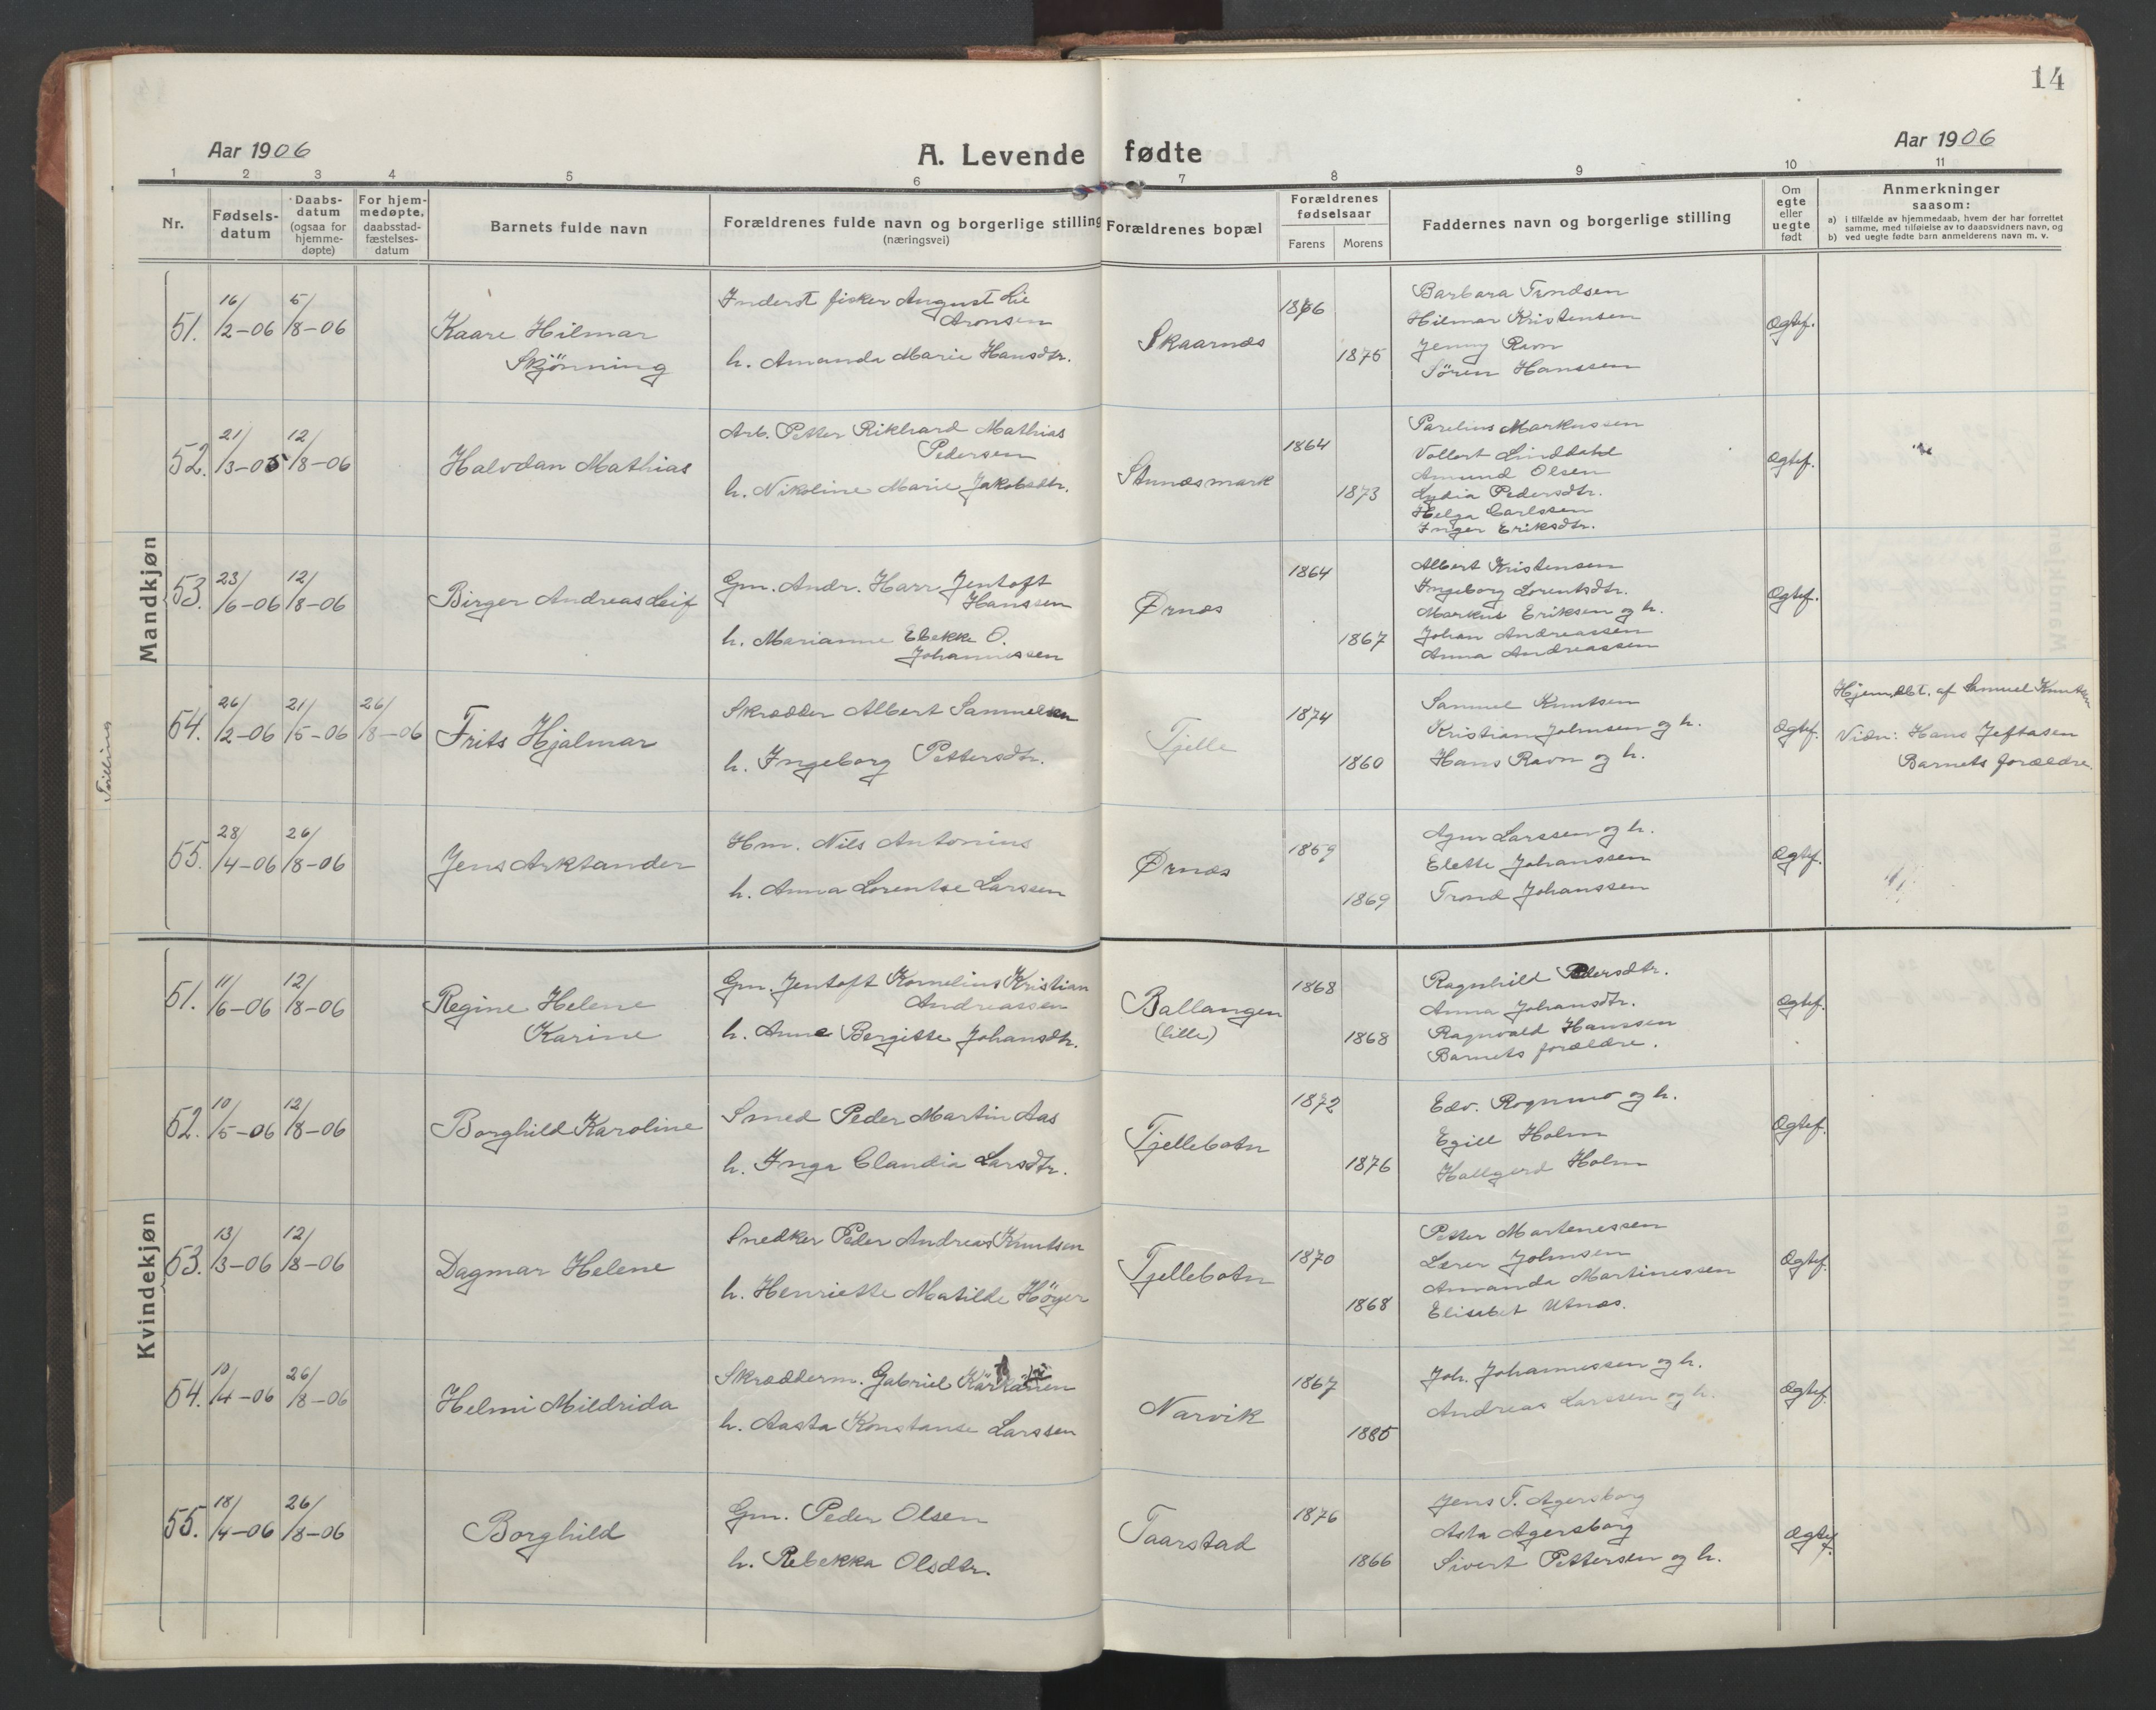 14
Aar 1906
A. Levende fødte
Aar 1906
1 2 3 4 5 6 7 8 9 10 11
Nr.
Fødsels-
datum
Daabs-
datum
(ogsaa for
hjemme-
døpte)
For hjem-
medøpte,
daabsstad-
fæstelses-
datum
Barnets fulde navn
Forældrenes fulde navn og borgerlige stilling
(næringsvei)
Forældrenes bopæl
Forældrenes
fødselsaar
Farens Morens
Faddernes navn og borgerlige stilling
Om
egte
eller
uegte
født
Anmerkninger
saasom:
a) i tilfælde av hjemmedaab, hvem der har forrettet
samme, med tilføielse av to daabsvidners navn, og
b) ved uegte fødte barn anmelderens navn m. v.
Mandkjøn
51. 16/2-06 5/8-06
Kaare Hilmar
Skjönning
Inderst fisker August Lie
Aronsen
h. Amanda Marie Hansdtr.
Skaarnæs
1866
1875
Barbara
Hilmar Kristensen
Jenny Ravn
Sören Hanssen
Ægtef.
52. 21/3-05 12/8-06
Halvdan Mathias
Arb. Petter Rikhard Mathias
Pedersen
h. Nikoline Marie Jakobsdtr.
Stunæsmark
1864
1873
Parelius Markussen
Vollert Linddahl
Amund Olsen
Lydia Pedersdtr.
Helga Carlssen
Inger Eriksdtr.
Ægtef.
53. 23/6-06 12/8-06
Birger Andreas Leif
Gm. Andr. Harr Jentoft
Hanssen
h. Marianne Ebekke O.
Johannessen
Ørnæs
1864
1867
Albert Kristensen
Ingeborg Lorentsdtr.
Markus Eriksen og h.
Johan Andreassen
Anna Andreassen
Ægtef.
54. 26/2-06 21/5-06 26/8-06
Frits Hjalmar
Skrædder Albert Samuelsen
h. Ingeborg Pettersdtr.
Tjelle
1874
1860
Samuel Knutsen
Kristian Johnsen og h.
Hans Ravn og h.
Ægtef.
Hjemdbt. af Samuel Knutsen
Vidn: Hans Jeftasen
Barnets forældre.
55. 28/4-06 26/8-06
Jens Arktander
Hm. Nils Antonius
h. Anna Lorentse Larssen
Ørnæs
1859
1869
Agur Larssen og h.
Elette Johanssen
Trond Johanssen
Ægtef.
Kvindekjøn
51. 11/6-06 12/8-06
Regine Helene
Karine
Gm. Jentoft Kornelius Kristian
Andreassen
h. Anne Bergitte Johansdtr.
Ballangen
(lille)
1868
1868
Ragnhild Pedersdtr.
Anna Johansdtr.
Ragnvald Hanssen
Barnets forældre.
Ægtef.
52. 10/5-06 12/8-06
Borghild Karoline
Smed Peder Martin Aas
h. Inga Claudia Larsdtr.
Tjellebotn
1872
1876
Edv. Rognmo og h.
Egill Holm
Hallgerd Holm
Ægtef.
53. 13/3-06 12/8-06
Dagmar Helene
Snedker Peder Andreas Knutsen
h. Henriette Matilde Höyer
Tjellebotn
1870
1868
Petter Martenessen
Lærer Johnsen
Amanda Martinessen
Elisabet Utnæs.
Ægtef.
54. 10/4-06 26/8-06
Helmi Mildrida
Skrædderm. Gabriel
h. Aasta Konstanse Larssen
Narvik
1867
1885
Joh. Johannessen og h.
Andreas Larssen og h.
Ægtef.
55. 18/4-06 26/8-06
Borghild
Gm. Peder Olsen
h. Rebekka Olsdtr.
Taarstad
1876
1866
Jens T. Agersborg
Asta Agersborg
Sivert Pettersen og h.
Ægtef.